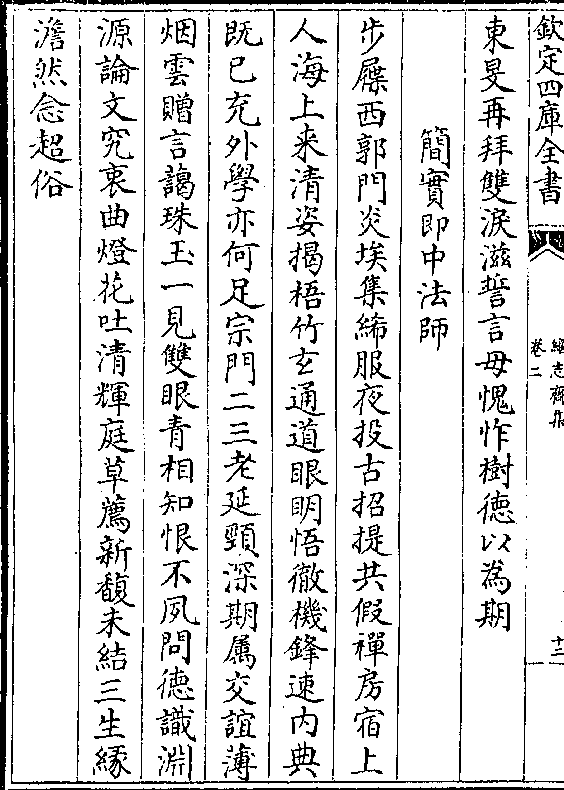 欽定四庫全書
繼志齋集
卷二
十三
東旻再拜雙淚滋誓言毋愧怍樹德以為期
簡實即中法師
步屧西郭門炎埃集絺服夜投古招提共假禪房宿上
人海上来清姿揭梧竹玄通道眼明悟徹機鋒速内典
既已充外學亦何足宗門二三老延頸深期属交誼薄
烟雲贈言藹珠玉一見雙眼青相知恨不夙問德識淵
源論文究衷曲燈花吐清輝庭草薦新馥未結三生緣
澹然念超俗